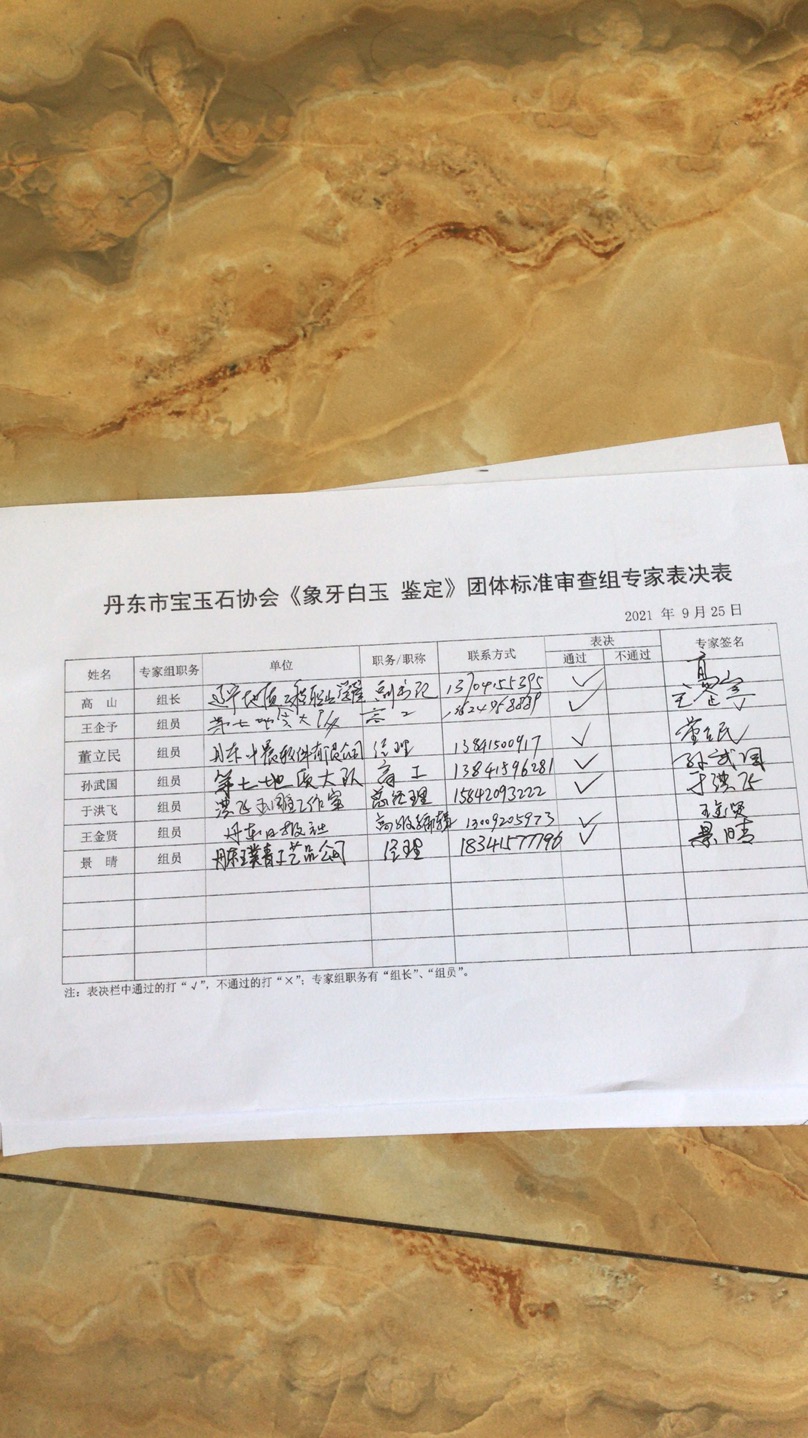 丹东市宝玉石协会《象牙白玉 鉴定》团体标准审查组专家表决表
2021 年 9 月 25 日
姓名 专家组职务 单位 职务/职称 联系方式 表决 专家签名
通过 不通过
高 山 组长 辽宁地质工程职业学院 副书记 ✓ 高山
王企予 组员 第七地质大队 高工 ✓ 王企予
董立民 组员 经理 13841500917 ✓ 董立民
孙武国 组员 第七地质大队 高工 13841596281 ✓ 孙武国
于洪飞 组员 洪飞玉雕工作室 总经理 15842093222 ✓ 于洪飞
王金贤 组员 丹东日报社 高级编辑 13009205973 ✓ 王金贤
景 晴 组员 丹东璞青工艺品公司 经理 18341577796 ✓ 景晴
注：表决栏中通过的打“√”，不通过的打“×”；专家组职务有“组长”、“组员”。